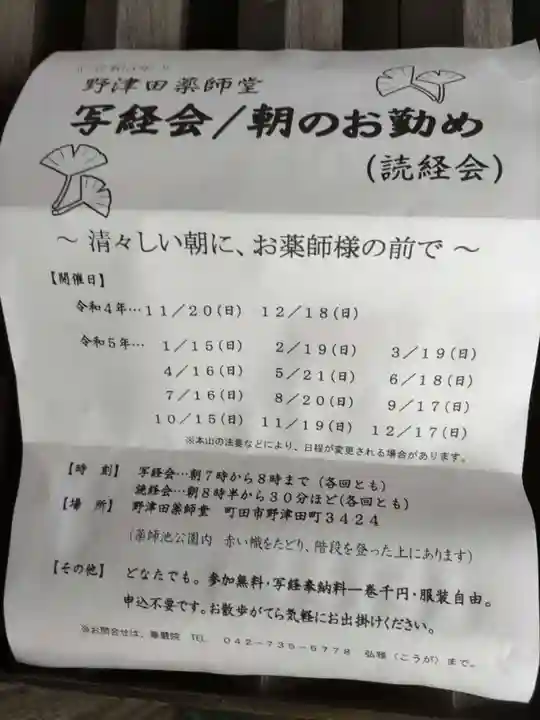 野津田薬師堂
写経会/朝のお勤め
(読経会)
~ 清々しい朝に、お薬師様の前で ~
【開催日】
令和4年…11/20(日) 12/18(日)
令和5年… 1/15(日) 2/19(日) 3/19(日)
4/16(日) 5/21(日) 6/18(日)
7/16(日) 8/20(日) 9/17(日)
10/15(日) 11/19(日) 12/17(日)
※本山の法要などにより、日程が変更される場合があります。
【時 刻】 写経会…朝7時から8時まで(各回とも)
読経会…朝8時半から30分ほど(各回とも)
【場 所】 野津田薬師堂 町田市野津田町3424
(薬師池公園内 赤い幟をたどり、階段を登った上にあります)
【その他】 どなたでも。参加無料・写経奉納料一巻千円・服装自由。
申込不要です。お散歩がてら気軽にお出掛けください。
※お問合せは、華嚴院 TEL 042-735-6778 弘雅(こうが)まで。